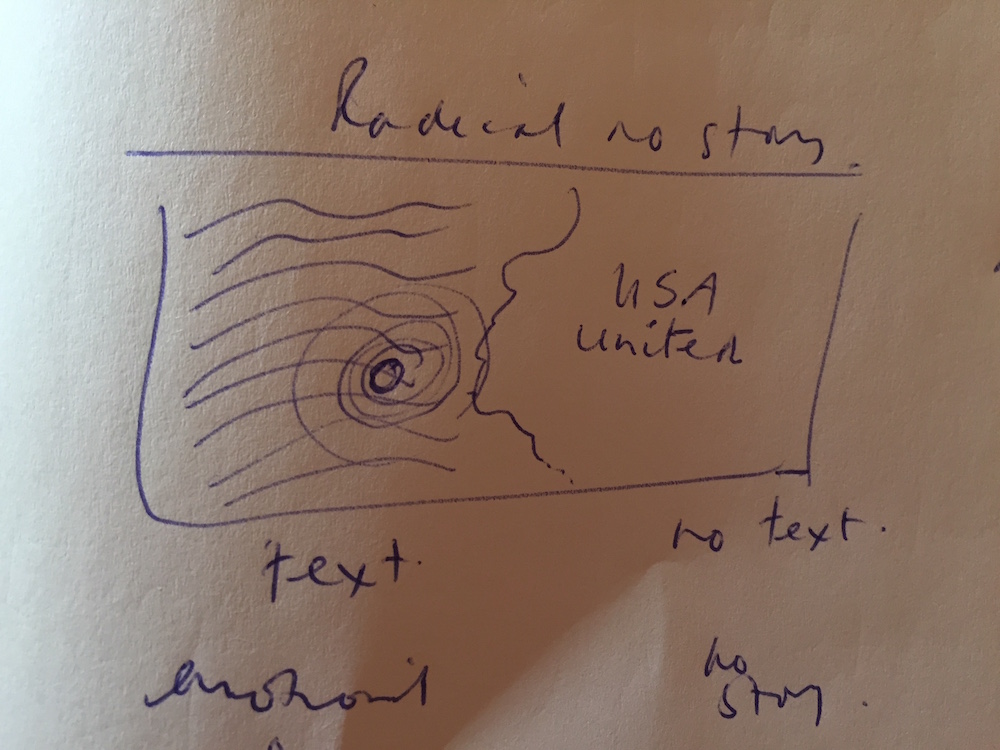 Radical no story.
USA
united
text.
no text.
emotional
no
story.